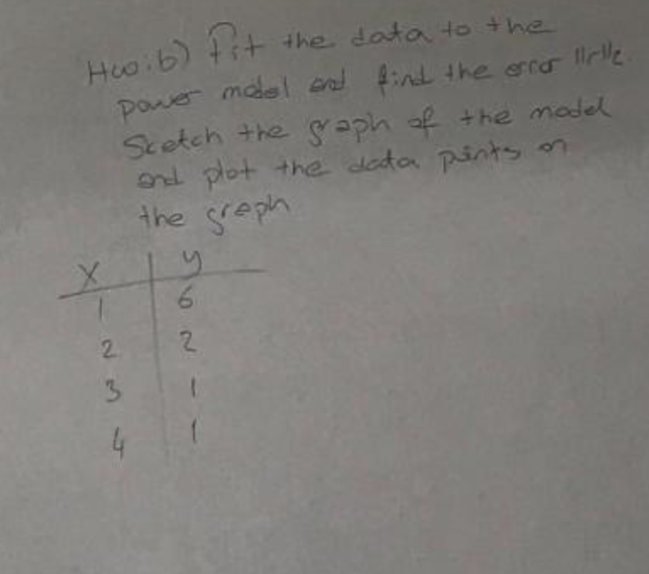 Hw:b) Fit the data to the
power model and find the error ||r||₂.
Sketch the graph of the model
and plot the data points on
the graph
x | y
1 | 6
2 | 2
3 | 1
4 | 1